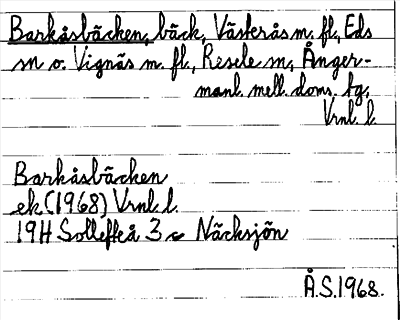 Barkåsbäcken, bäck, Västerås m. fl., Eds
sn o. Vignäs m. fl., Resele sn, Ånger-
manl. mell. doms. tg.
Vrnl. l.
Barkåsbäcken
ek (1968) Vrnl. l.
19H Sollefteå 3 c Näcksjön
Å.S. 1968.